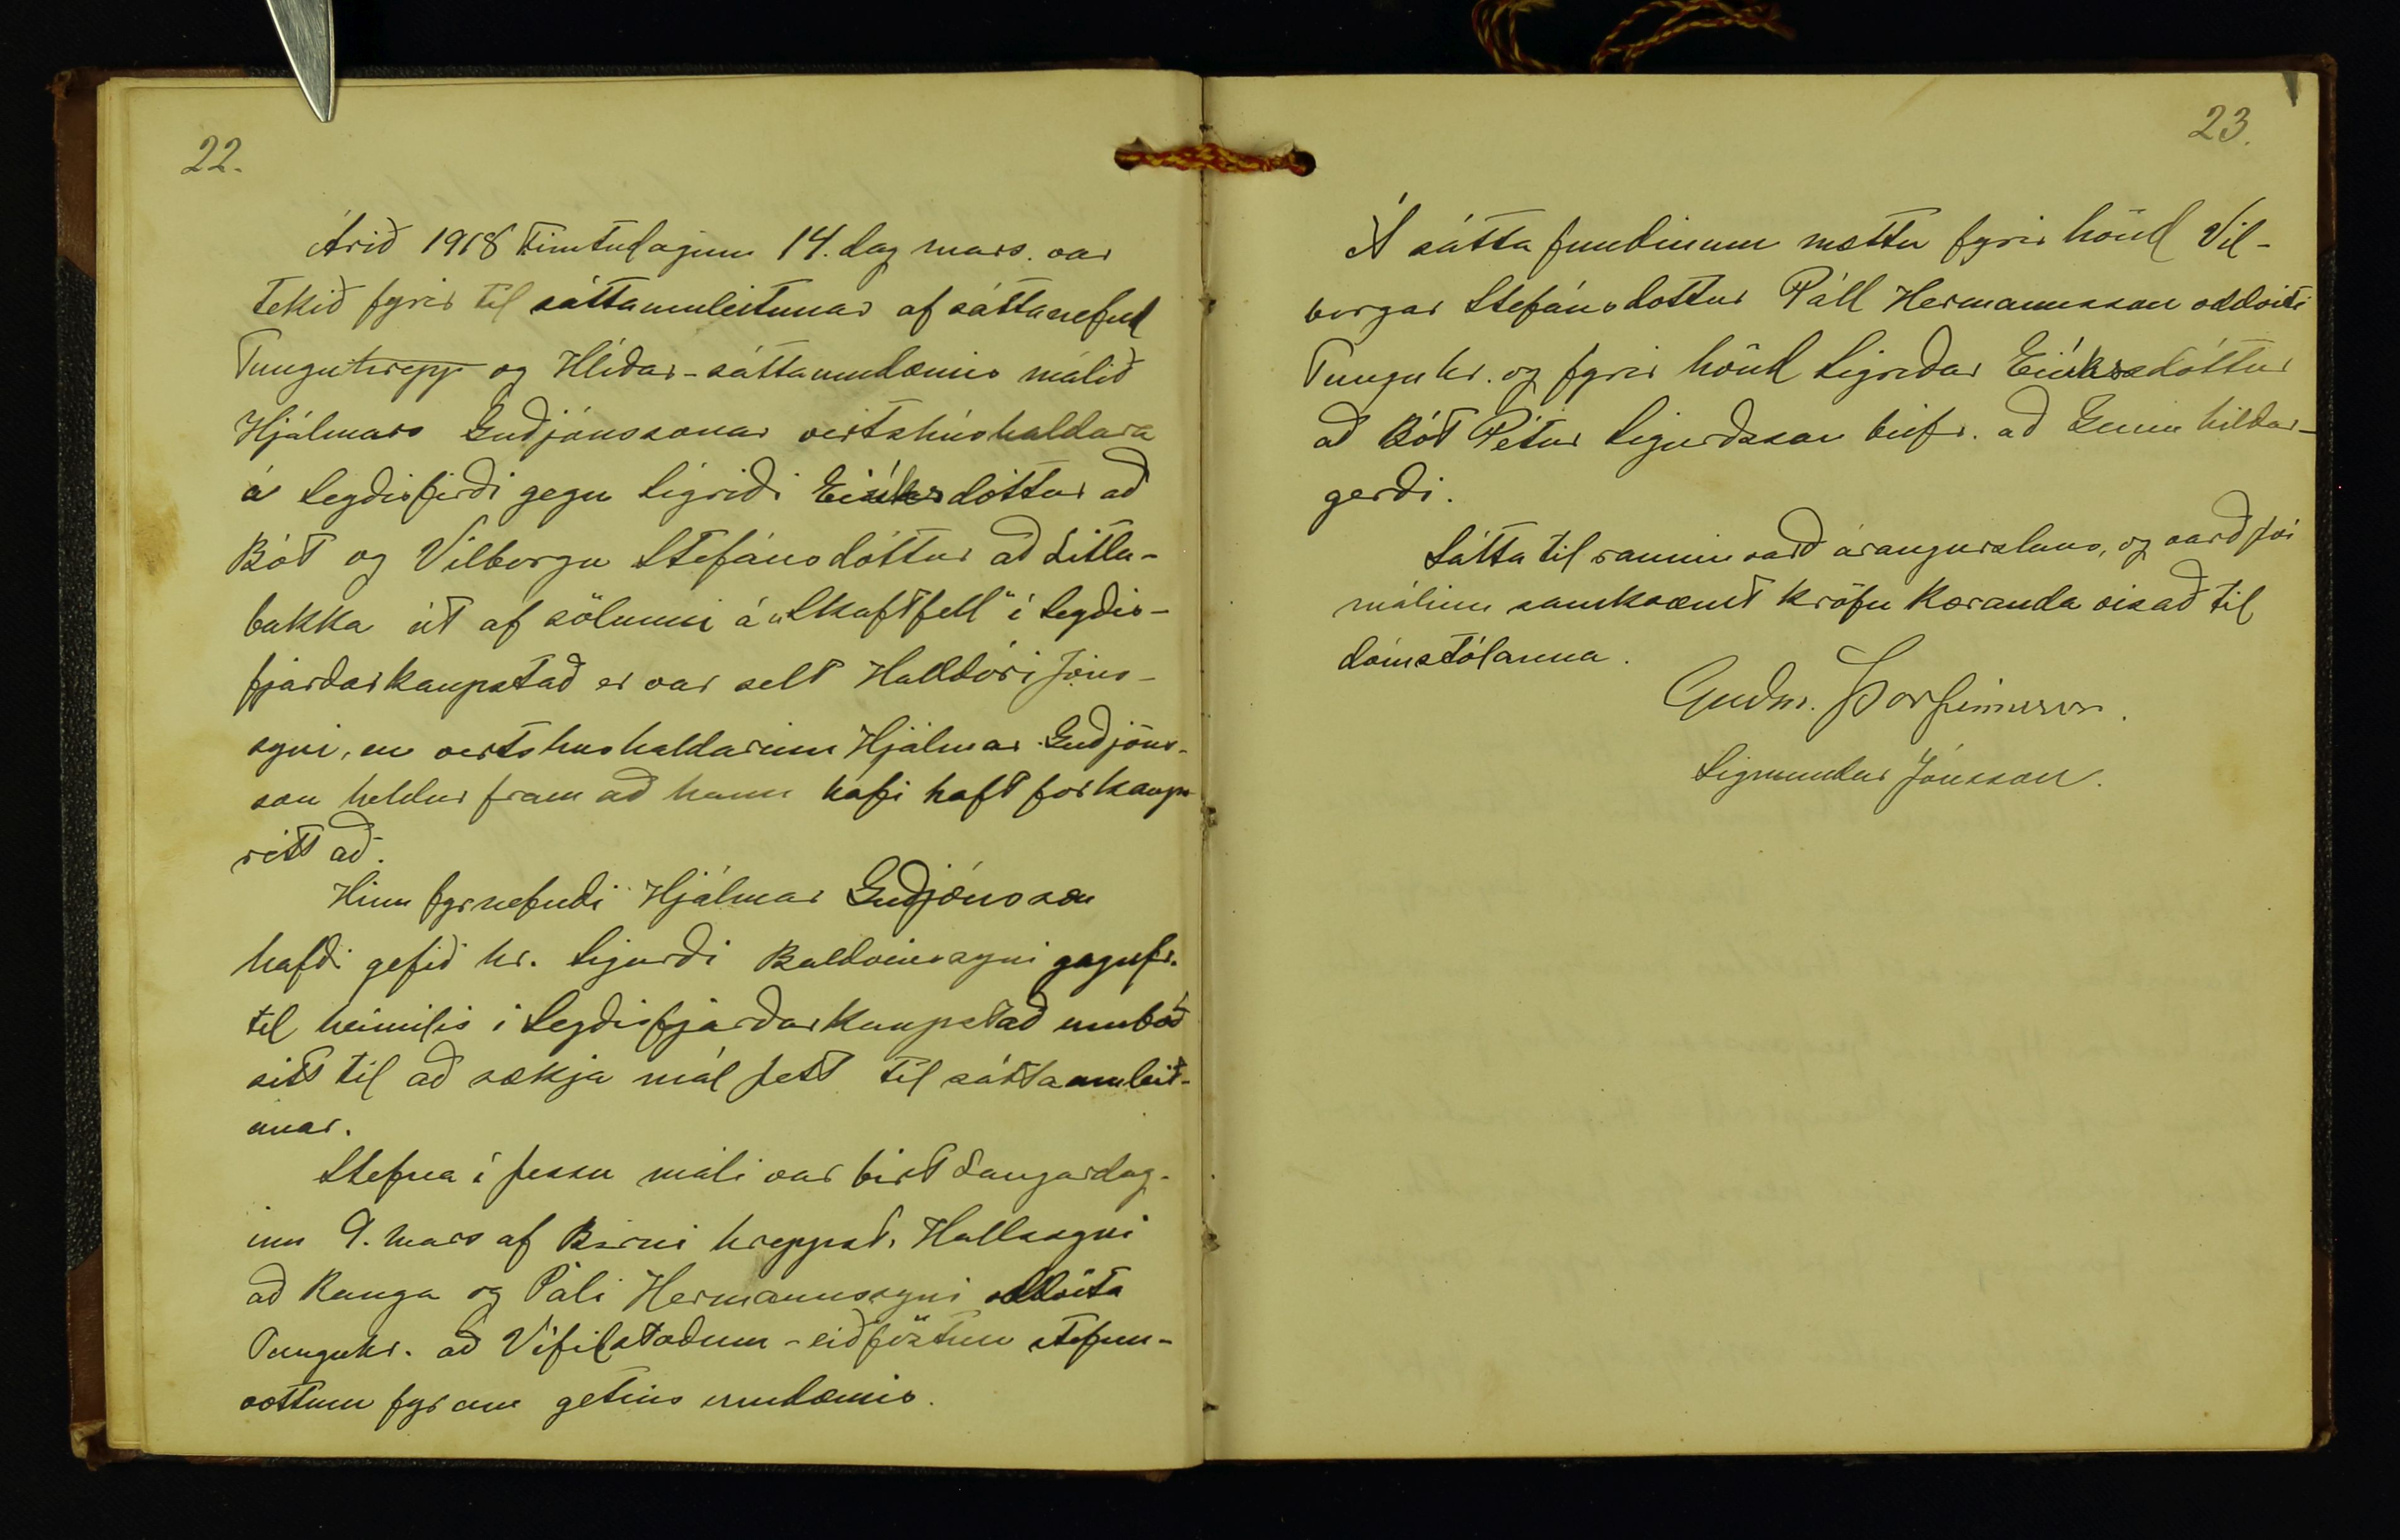 22.
Árið 1918 Fimtudaginn 14. dag mars. var
tekið fyrir til sáttaumleitunar af sáttanefnd
Tunguhrepp og Hlíðar-sáttaumdæmis málið
Hjálmars Guðjónssonar veitshúshaldara
á Seyðisfirði gegn Sigríði Eiríksdóttur að
Bót og Vilborgu Stefánsdóttur að Litla-
bakka út af sölunni á „Skaftfell" í Seyðis-
fjarðarkaupstað er var selt Halldóri Jóns-
syni, en vertshushaldarinn Hjálmar Guðjóns-
son heldur fram að hann hafi haft forkaups
rétt að.
Hinn fyrnefndi Hjálmar Guðjónsson
hafði gefið hr. Sigurði Baldvinssyni gagnfr.
til heimilis í Seyðisfjarðarkaupstað umboð
sitt til að sækja mál þett til sáttaumleit-
unar.
Stefna í þessu máli var birt Laugardag-
inn 9. Mars af Birni hreppst. Hallssyni
að Ranga og Páli Hermannssyni oddvita
Tunguhr. að Vífilstöðum - eiðföstum stefnu-
vottum fyr um getins umdæmis.
23.
Á sáttafundinum mættu fyrir hönd Vil-
borgar Stefánsdottur Páll Hermannsson oddviti
Tunguhr. og fyrir hönd Sigríðar Eiríksdóttur
að Bót Pétur Sigurðsson búfr. að Gunnhildar-
gerði.
Sáttatilraunin varð árangurslaus, og varð því
málinu samkvæmt kröfu kæranda vísað til
dómstólanna.
Guðm. Þorfinnsson.
Sigmundur Jónsson.